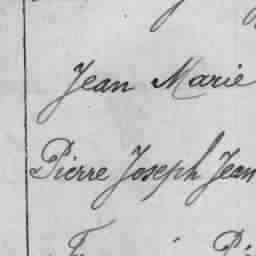 Jean Marie
Pierre Joseph Jean